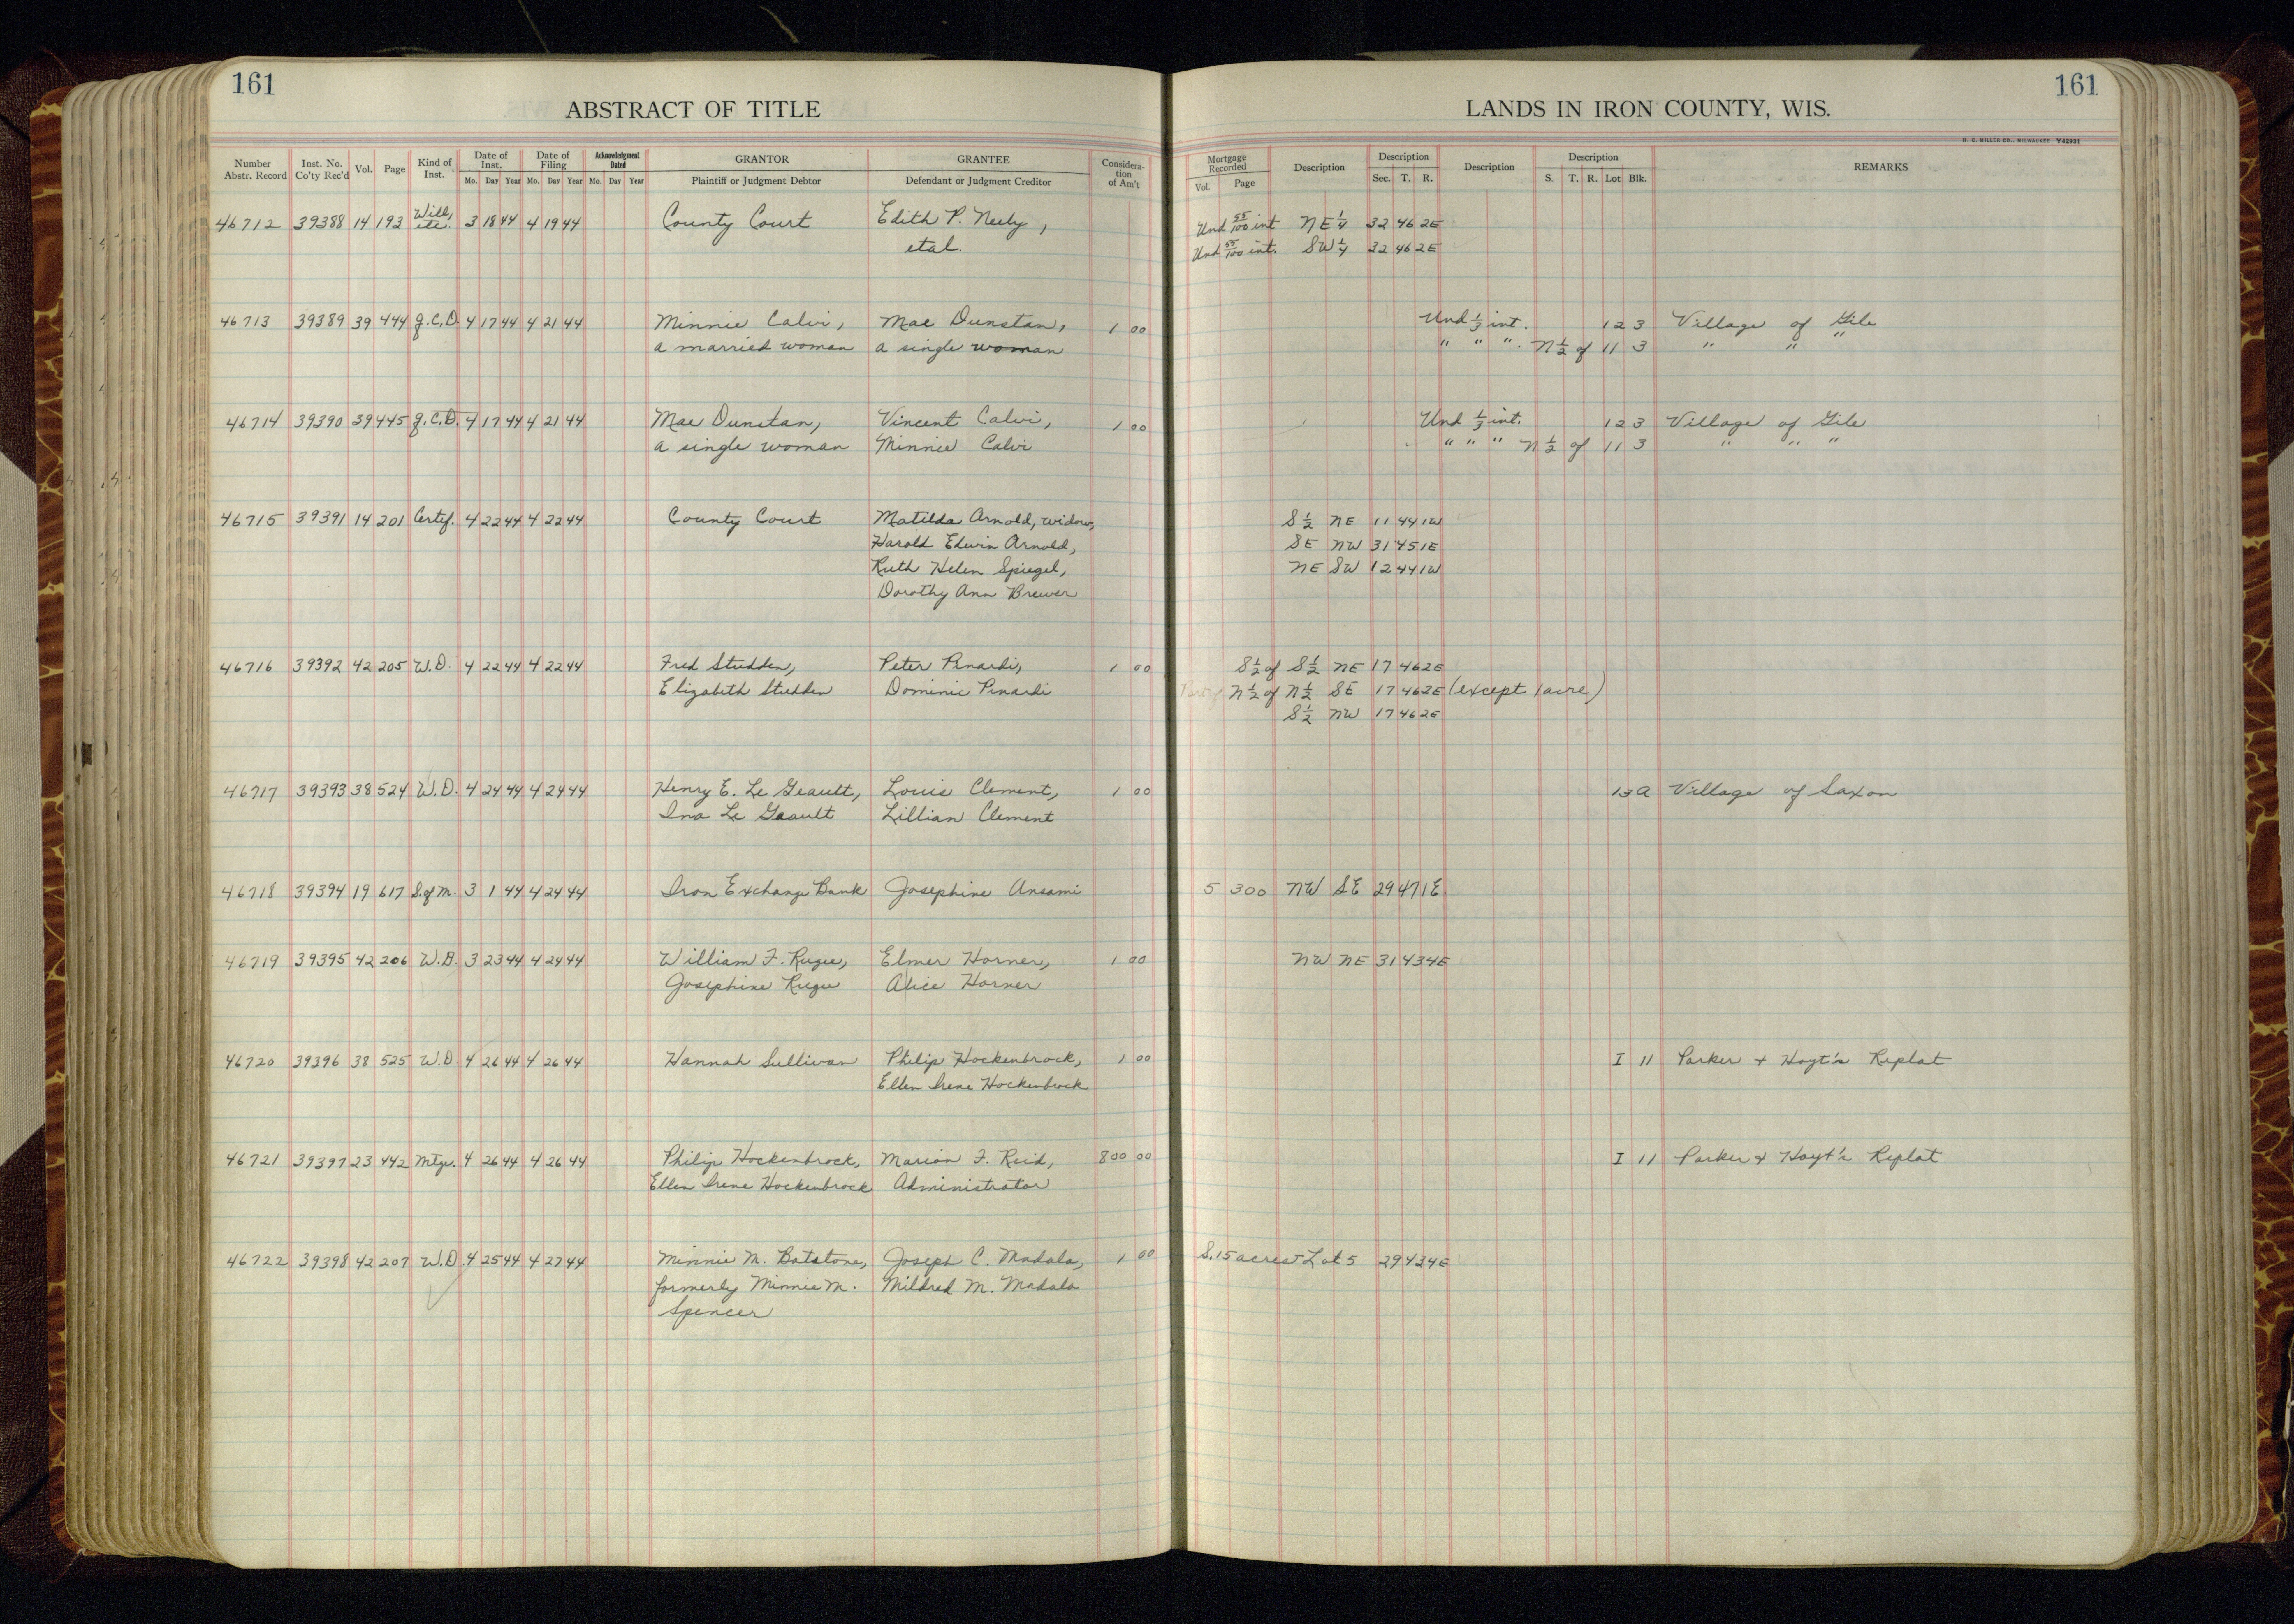 161
ABSTRACT OF TITLE
Number Abstr. Record Inst. No. Co'ty Rec'd Vol. Page Kind of Inst. Date of Inst. Mo. Day Year Date of Filing Mo. Day Year Acknowledgment Dated Mo. Day Year GRANTOR Plaintiff or Judgment Debtor GRANTEE Defendant or Judgment Creditor Considera-tion of Am't
161
LANDS IN IRON COUNTY, WIS.
H. C. MILLER CO., MILWAUKEE Y42931
Mortgage Recorded Vol. Page Description Description Sec. T. R. Description Description S. T. R. Lot Blk. REMARKS
46712 39388 14 193 Will, etc. 3 18 44 4 19 44 County Court Edith P. Neely, Und 55/100 int NE 1/4 32 46 2E
etal. Und 55/100 int. SW 1/4 32 46 2E
46713 39389 39 444 Q.C.D. 4 17 44 4 21 44 Minnie Calvi, Mae Dunstan, 1 00 Und 1/3 int. 12 3 Village of Gile
a married woman a single woman " " ". N 1/2 of 11 3 " " "
46714 39390 39 445 Q.C.D. 4 17 44 4 21 44 Mae Dunstan, Vincent Calvi, 1 00 Und 1/3 int. 12 3 Village of Gile
a single woman Minnie Calvi " " " N 1/2 of 11 3 " " "
46715 39391 14 201 Certif. 4 22 44 4 22 44 County Court Matilda Arnold, widow, S 1/2 NE 11 44 1W
Harold Edwin Arnold, SE NW 31 45 1E
Ruth Helen Spiegel, NE SW 12 44 1W
Dorothy Ann Brewer
46716 39392 42 205 W.D. 4 22 44 4 22 44 Fred Studden, Peter Pinardi, 1 00 S 1/2 of S 1/2 NE 17 46 2E
Elizabeth Studden Dominic Pinardi Part of N 1/2 of N 1/2 SE 17 46 2E (except 1 acre)
S 1/2 NW 17 46 2E
46717 39393 38 524 W.D. 4 24 44 4 24 44 Henry E. Le Geault, Louis Clement, 1 00 13 A Village of Saxon
Ina Le Geault Lillian Clement
46718 39394 19 617 S.of M. 3 1 44 4 24 44 Iron Exchange Bank Josephine Ansami 5 300 NW SE 29 47 1E
46719 39395 42 206 W.D. 3 23 44 4 24 44 William F. Rugee, Elmer Horner, 1 00 NW NE 31 43 4E
Josephine Rugee Alice Horner
46720 39396 38 525 W.D. 4 26 44 4 26 44 Hannah Sullivan Philip Hockenbrock, 1 00 I 11 Parker + Hoyt's Replat
Ellen Irene Hockenbrock
46721 39397 23 442 Mtge. 4 26 44 4 26 44 Philip Hockenbrock, Marion F. Reid, 800 00 I 11 Parker + Hoyt's Replat
Ellen Irene Hockenbrock Administrator
46722 39398 42 207 W.D. 4 25 44 4 27 44 Minnie M. Batstone, Joseph C. Madala, 1 00 S. 15 acres Lot 5 29 43 4E
formerly Minnie M. Mildred M. Madala
Spencer